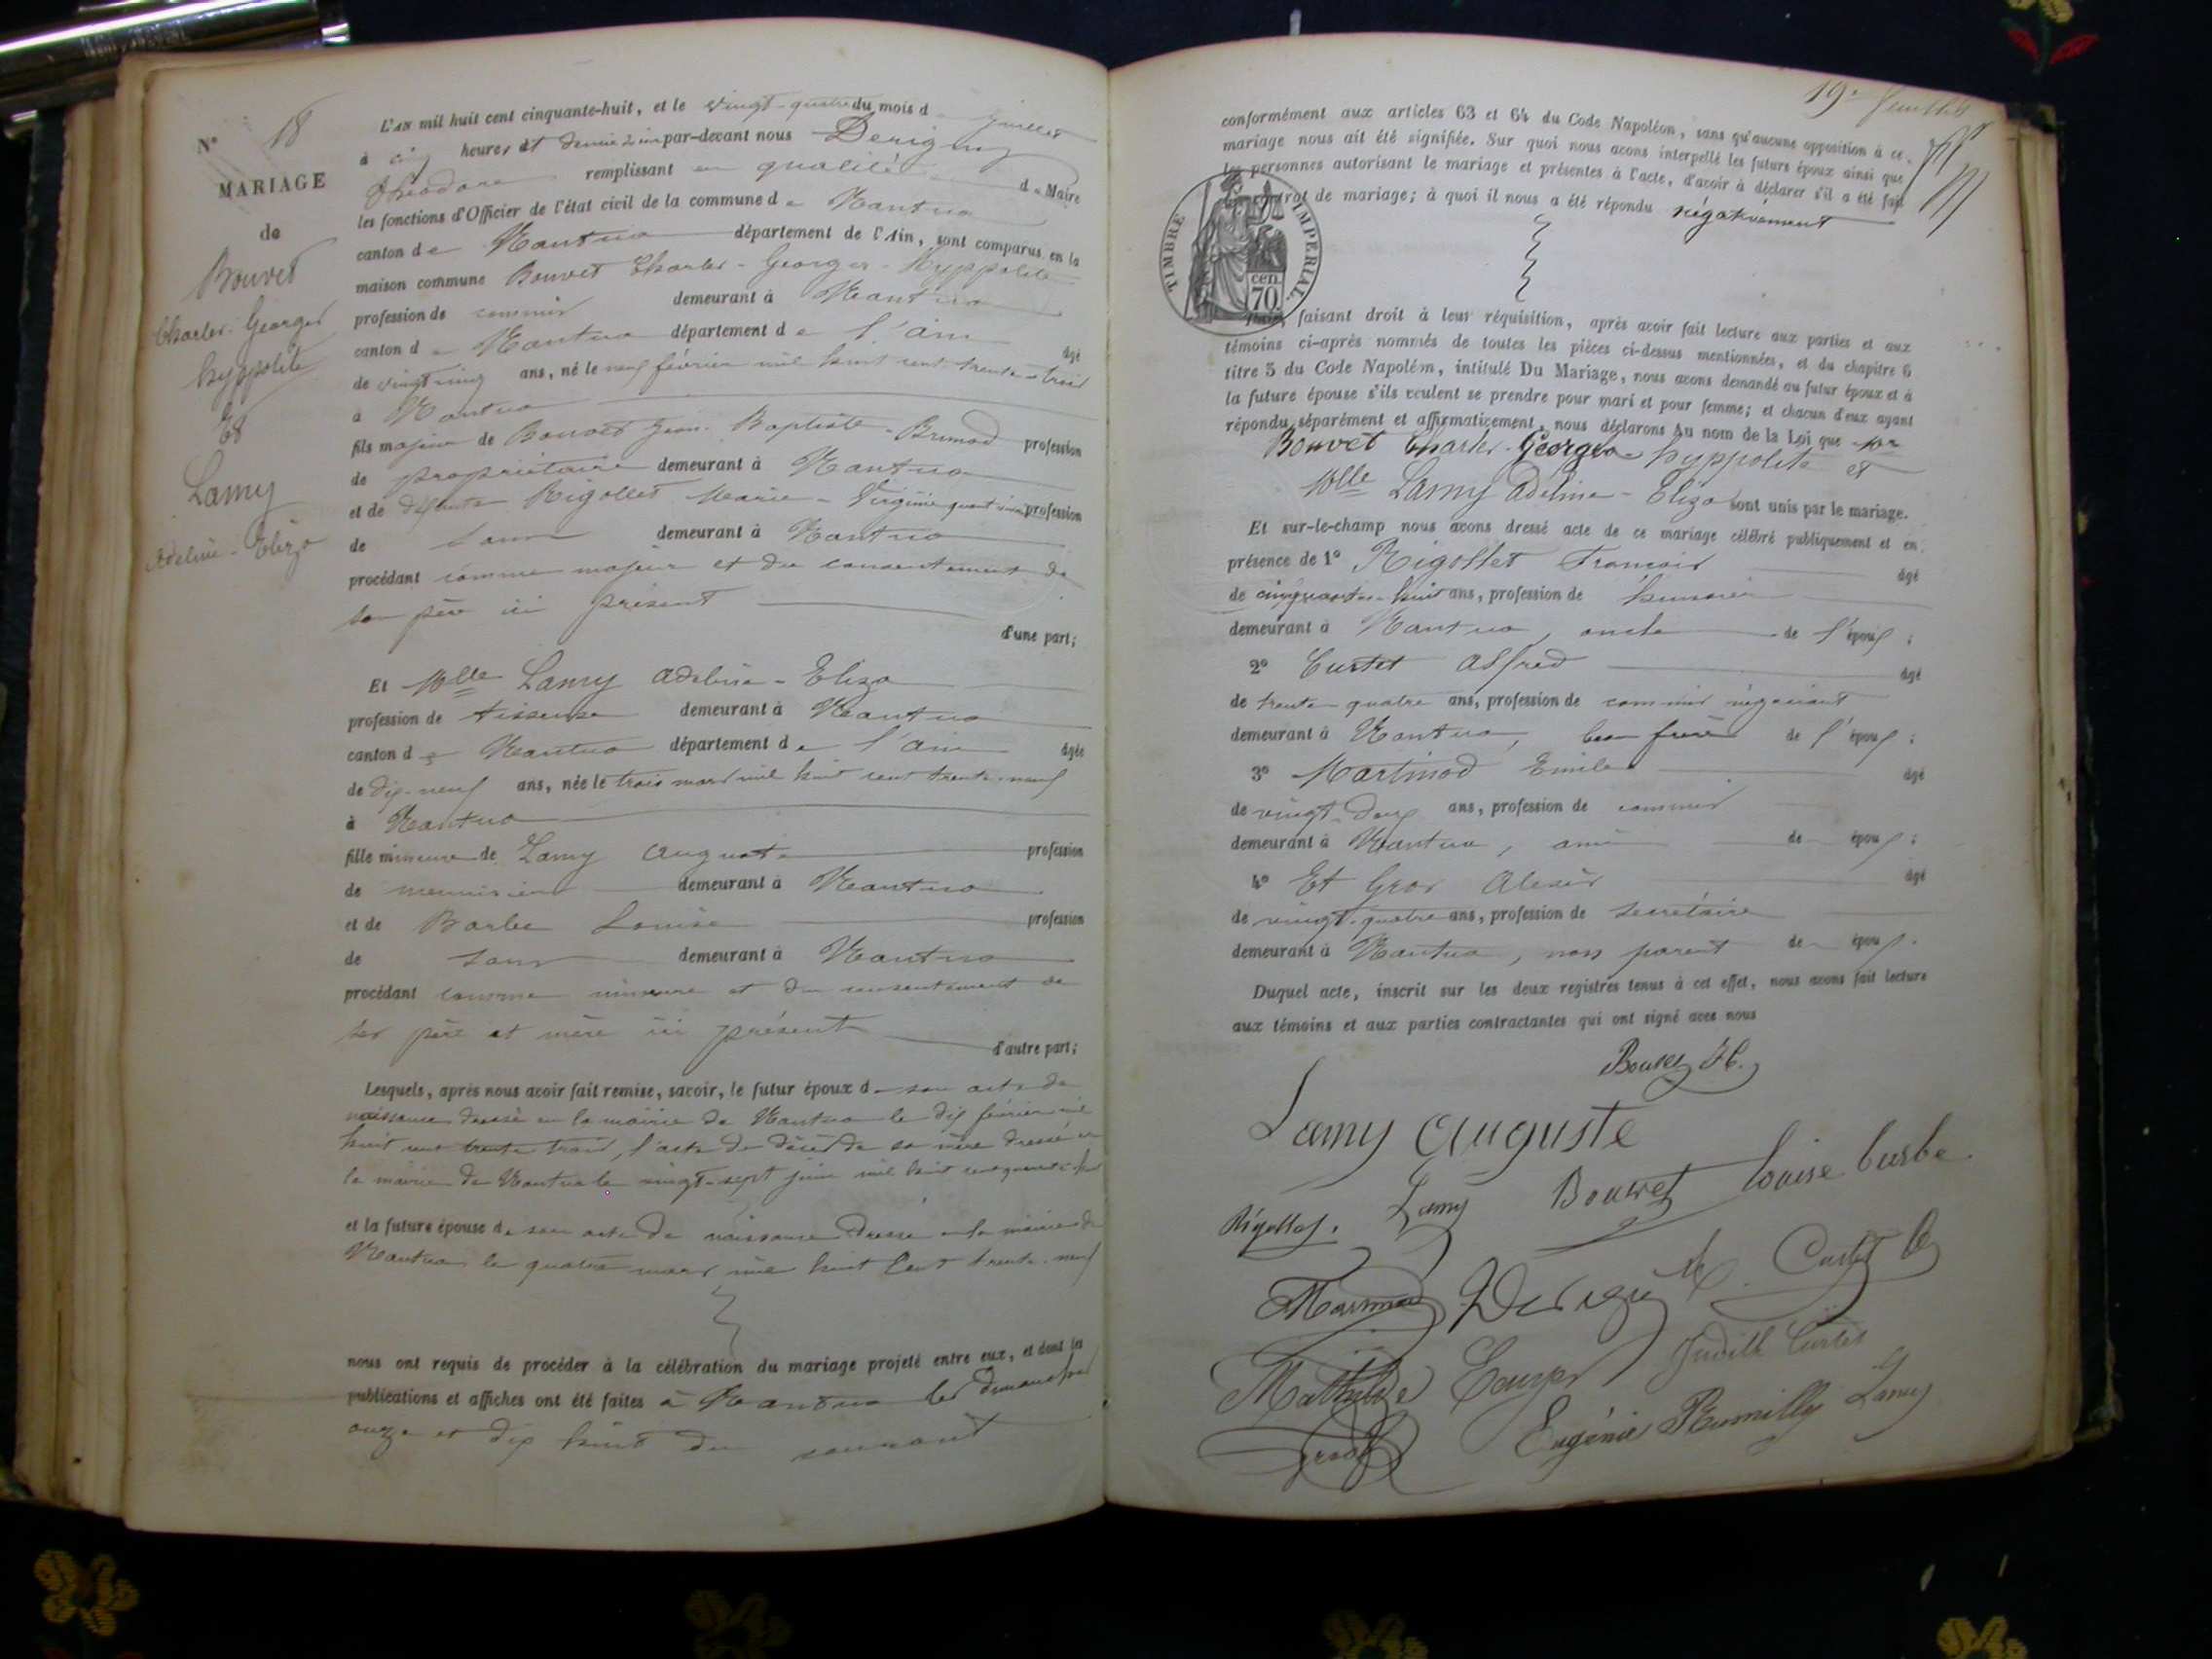 N° 18
MARIAGE
de
Bouvet
Charles-Georges
hyppolite
et
Lamy
Adeline-Eliza
L'AN mil huit cent cinquante-huit, et le vingt-quatre du mois de juillet
à cinq heures et demie par-devant nous Derigny
théodore remplissant en qualité de Maire
les fonctions d'Officier de l'état civil de la commune de Nantua
canton de Nantua département de l'Ain, sont comparus en la
maison commune Bouvet Charles-Georges-Hyppolite
profession de commis demeurant à Nantua
canton de Nantua département de l'ain âgé
de vingt cinq ans, né le neuf février mil huit cent trente-trois
à Nantua
fils majeur de Bouvet Jean-Baptiste-Brunod profession
de propriétaire demeurant à Nantua
et de défunte Rigollet Marie-Virginie quand vivait profession
de sans demeurant à Nantua
procédant comme majeur et du consentement de
son père ici présent
d'une part;
Et Mlle Lamy Adeline-Eliza
profession de tisseuse demeurant à Nantua
canton de Nantua département de l'ain âgée
de dix-neuf ans, née le trois mars mil huit cent trente-neuf
à Nantua
fille mineure de Lamy Auguste profession
de menuisier demeurant à Nantua
et de Barbe Louise profession
de sans demeurant à Nantua
procédant comme mineure et du consentement de
ses père et mère ici présent
d'autre part;
Lesquels, après nous avoir fait remise, savoir, le futur époux de son acte de
naissance dressé en la mairie de Nantua le dix février mil
huit cent trente trois, l'acte de décès de sa mère dressé en
la mairie de Nantua le vingt-sept juin mil huit cent
et la future épouse de son acte de naissance dressé en la mairie de
Nantua le quatre mars mil huit cent trente-neuf
nous ont requis de procéder à la célébration du mariage projeté entre eux, et dont les
publications et affiches ont été faites à Nantua les dimanches
onze et dix huit du courant
19e feuillet
conformément aux articles 63 et 64 du Code Napoléon, sans qu'aucune opposition à ce
mariage nous ait été signifiée. Sur quoi nous avons interpellé les futurs époux ainsi que
les personnes autorisant le mariage et présentes à l'acte, d'avoir à déclarer s'il a été fait
contrat de mariage; à quoi il nous a été répondu négativement
TIMBRE IMPERIAL
cen.
70
Nous, faisant droit à leur réquisition, après avoir fait lecture aux parties et aux
témoins ci-après nommés de toutes les pièces ci-dessus mentionnées, et du chapitre 6
titre 5 du Code Napoléon, intitulé Du Mariage, nous avons demandé au futur époux et à
la future épouse s'ils veulent se prendre pour mari et pour femme; et chacun d'eux ayant
répondu séparément et affirmativement, nous déclarons Au nom de la Loi que Mr
Bouvet Charles-Georges hyppolite et
Mlle Lamy Adeline-Eliza sont unis par le mariage.
Et sur-le-champ nous avons dressé acte de ce mariage célébré publiquement et en
présence de 1° Rigollet Francois âgé
de cinquante-huit ans, profession de huissier
demeurant à Nantua, oncle de l'époux;
2° Curtet Alfred âgé
de trente-quatre ans, profession de commis négociant
demeurant à Nantua, beau frère de l'époux;
3° Martinod Emile âgé
de vingt-deux ans, profession de commis
demeurant à Nantua, ami de époux;
4° Et Gros Alexis âgé
de vingt-quatre ans, profession de secrétaire
demeurant à Nantua, non parent de époux.
Duquel acte, inscrit sur les deux registres tenus à cet effet, nous avons fait lecture
aux témoins et aux parties contractantes qui ont signé avec nous
Bouvet H.
Lamy Auguste
Rigollet. Lamy Bouvet Louise burbe
Curtet
Mathilde Judith Curtet
Eugénie Rumilly Lamy